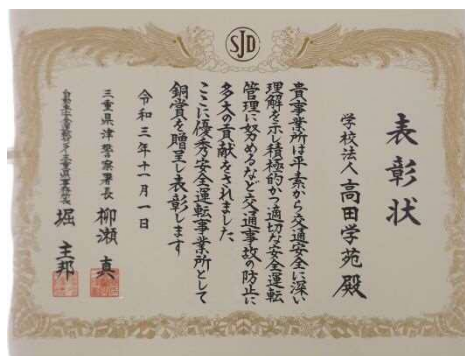 SJD
表彰状
学校法人 高田学苑 殿
貴事業所は平素から交通安全に深い
理解を示し積極的かつ適切な安全運転
管理に努めるなど交通事故の防止に
多大の貢献をされました
ここに優秀安全運転事業所として
銅賞を贈呈し表彰します
令和三年十一月一日
三重県津警察署長 柳瀬 真
自動車安全運転センター三重県事務所長 堀 主邦